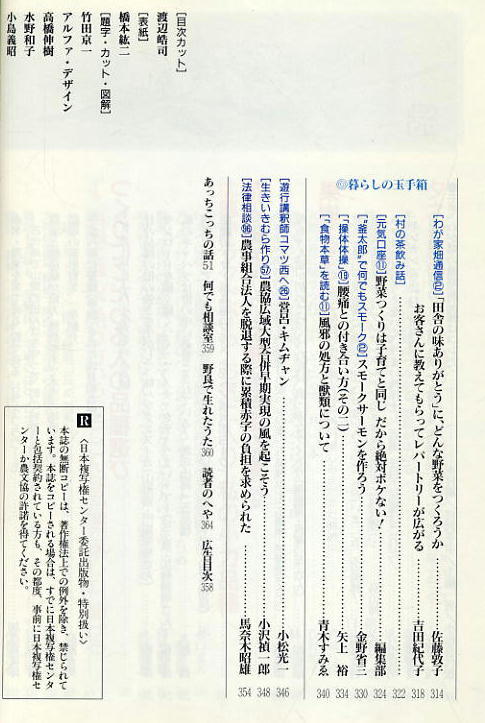 ◎暮らしの玉手箱
[わが家畑通信㉑]「田舎の味ありがとう」に、どんな野菜をつくろうか 佐藤敦子 314
お客さんに教えてもらってレパートリーが広がる 吉田紀代子 318
[村の茶飲み話] 322
[元気口座⑪]野菜つくりは子育てと同じ だから絶対ボケない! 編集部 324
["釜太郎"で何でもスモーク②]スモークサーモンを作ろう 金野省三 330
[「操体体操」⑲]腰痛との付き合い方(その二) 矢上 裕 334
[「食物本草」を読む⑪]風邪の処方と獣類について 青木すみゑ 340
[遊行講釈師コマツ西へ㉖]営呂・キムヂャン 小松光一 346
[生きいきむら作り㊼]農協広域大型合併早期実現の風を起こそう 小沢禎一郎 348
[法律相談96]農事組合法人を脱退する際に累積赤字の負担を求められた 馬奈木昭雄 354
あっちこっちの話51 何でも相談室359 野良で生れたうた360 読者のへや364 広告目次358
[目次カット]
渡辺皓司
[表紙]
橋本紘二
[題字・カット・図解]
竹田京一
アルファ・デザイン
高橋伸樹
水野和子
小島義昭
R
〈日本複写権センター委託出版物・特別扱い〉
本誌の無断コピーは、著作権法上での例外を除き、禁じられて
います。本誌をコピーされる場合は、すでに日本複写権センタ
ーと包括契約されている方も、その都度、事前に日本複写権セ
ンターか農文協の許諾を得てください。